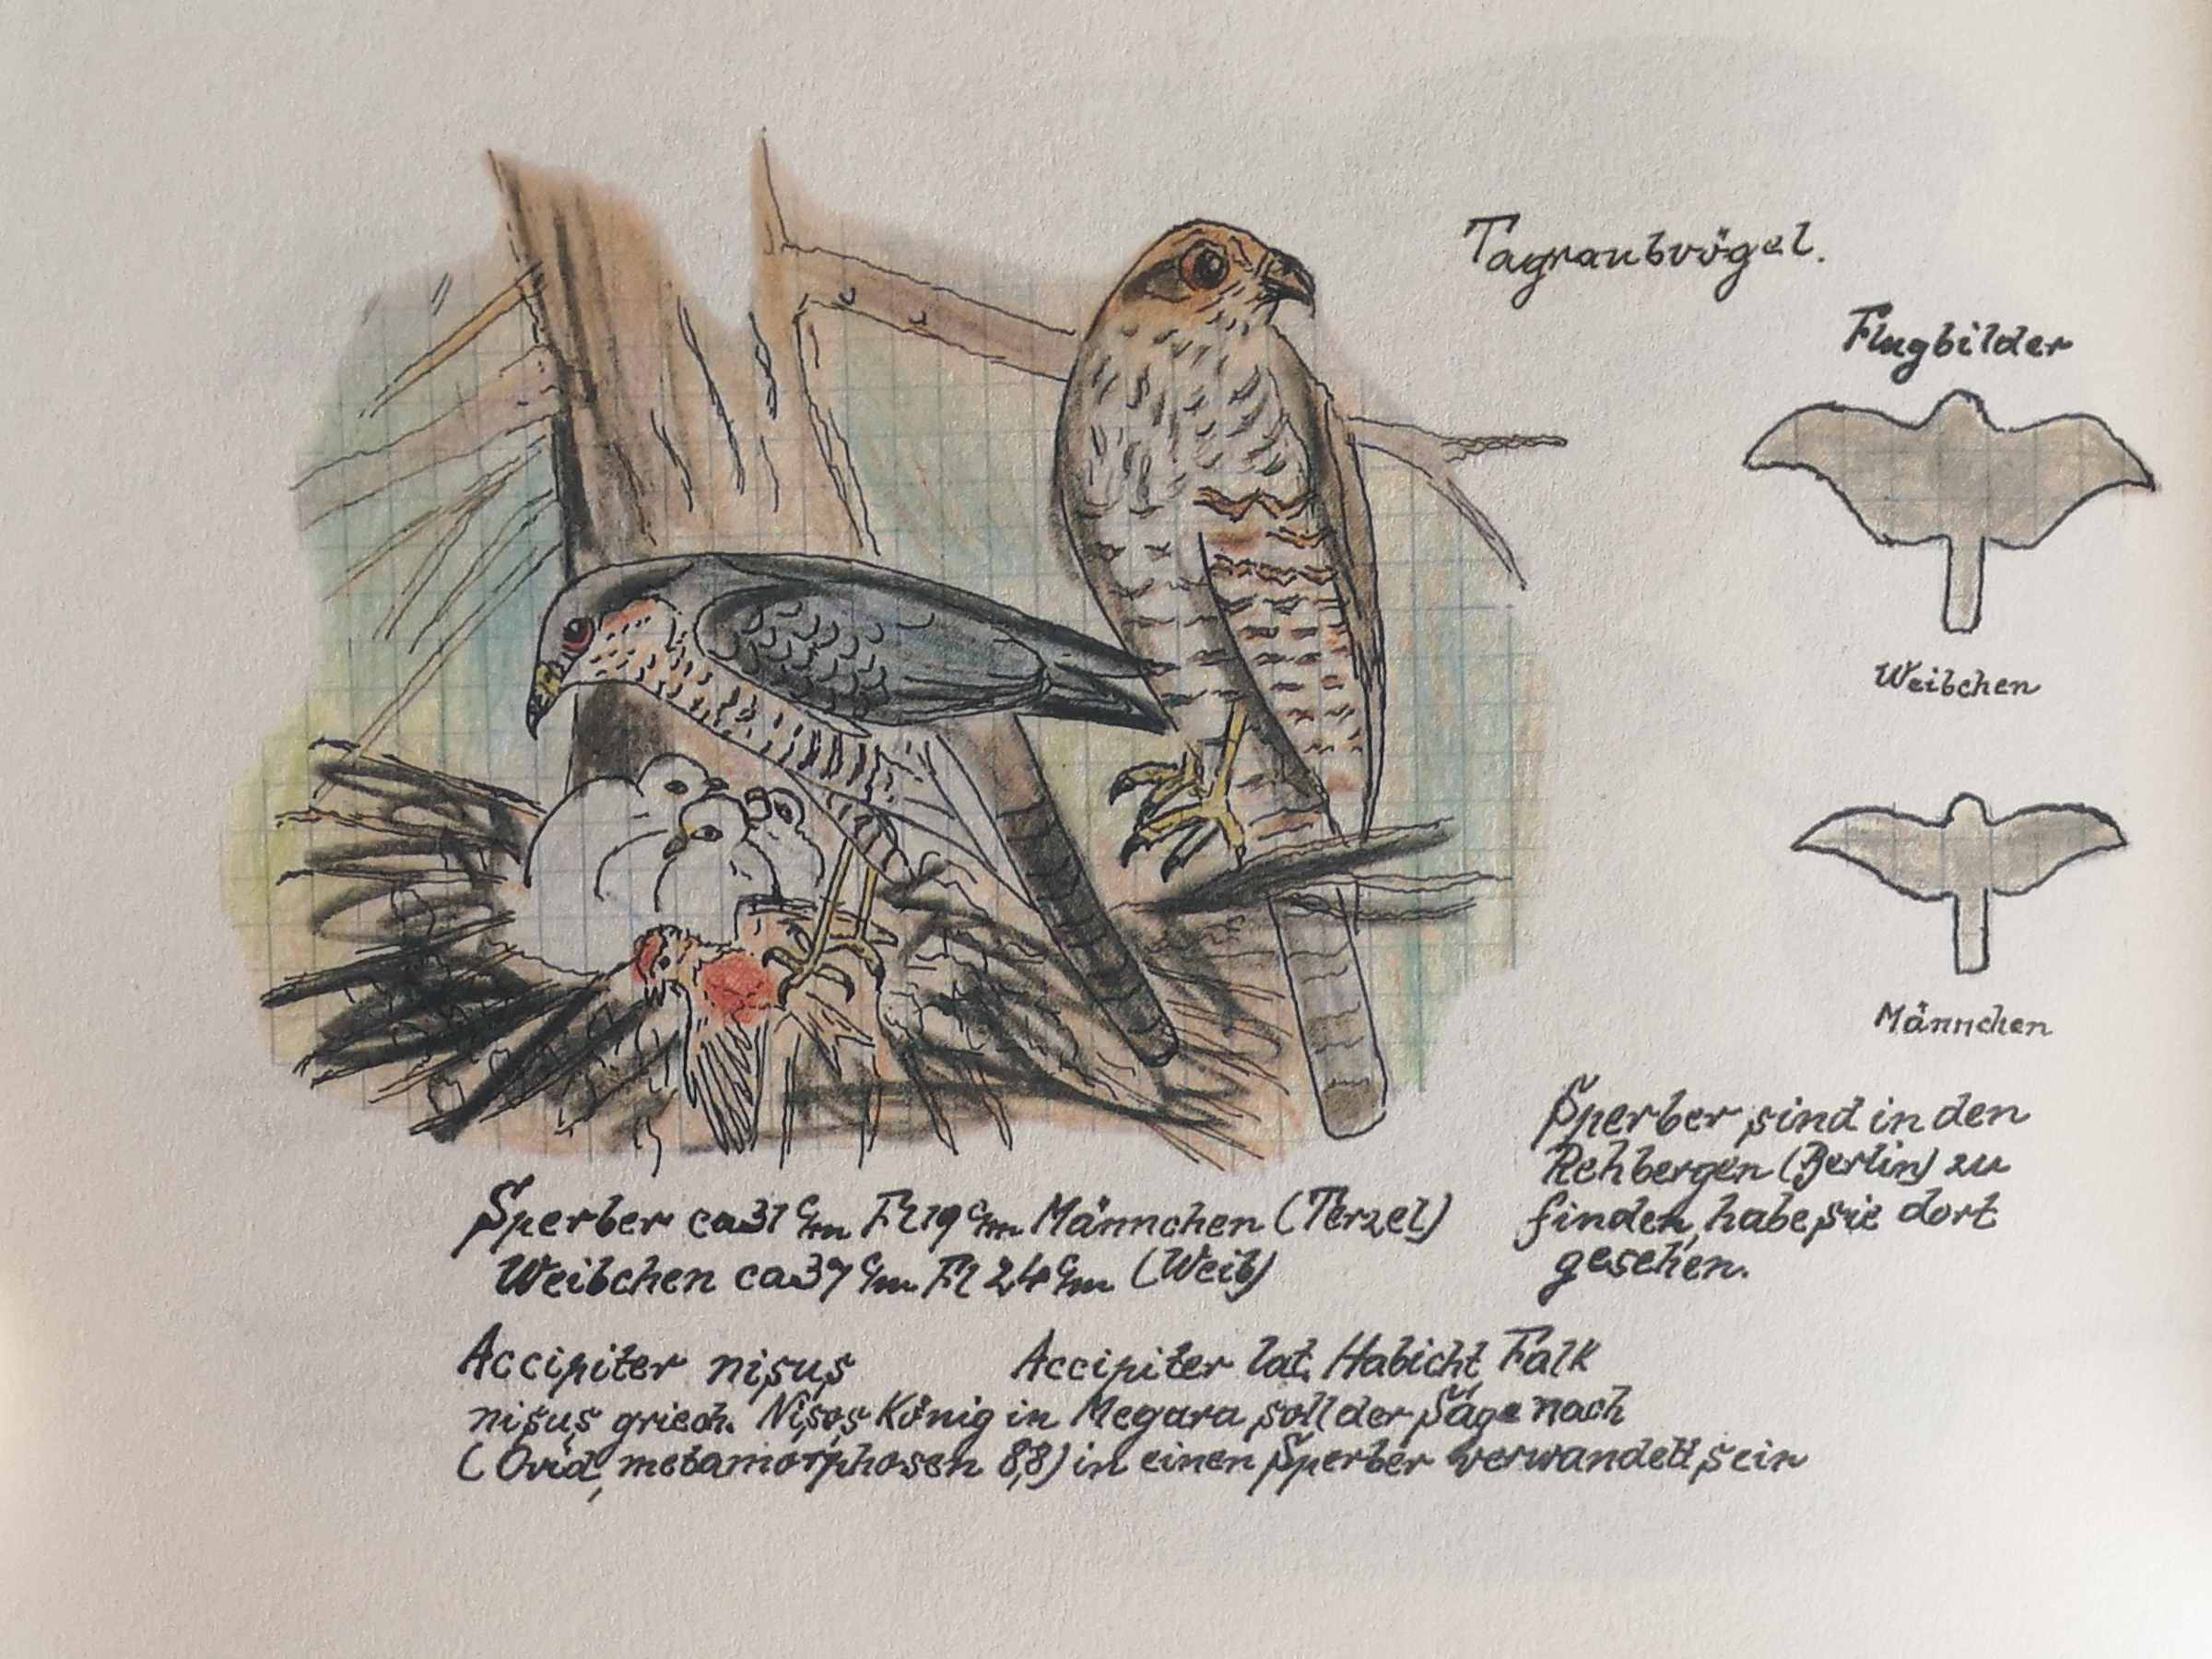 Tagraubvögel.
Flugbilder
Weibchen
Männchen
Sperber sind in den
Rehbergen (Berlin) zu
finden, habe sie dort
gesehen.
Sperber ca 31 cm Fl 19 cm Männchen (Terzel)
Weibchen ca 37 cm Fl 24 cm (Weib)
Accipiter nisus Accipiter lat. Habicht, Falk
nisus griech. Nisos König in Megara soll der Sage nach
(Ovid, metamorphosen 8,8) in einen Sperber verwandelt sein